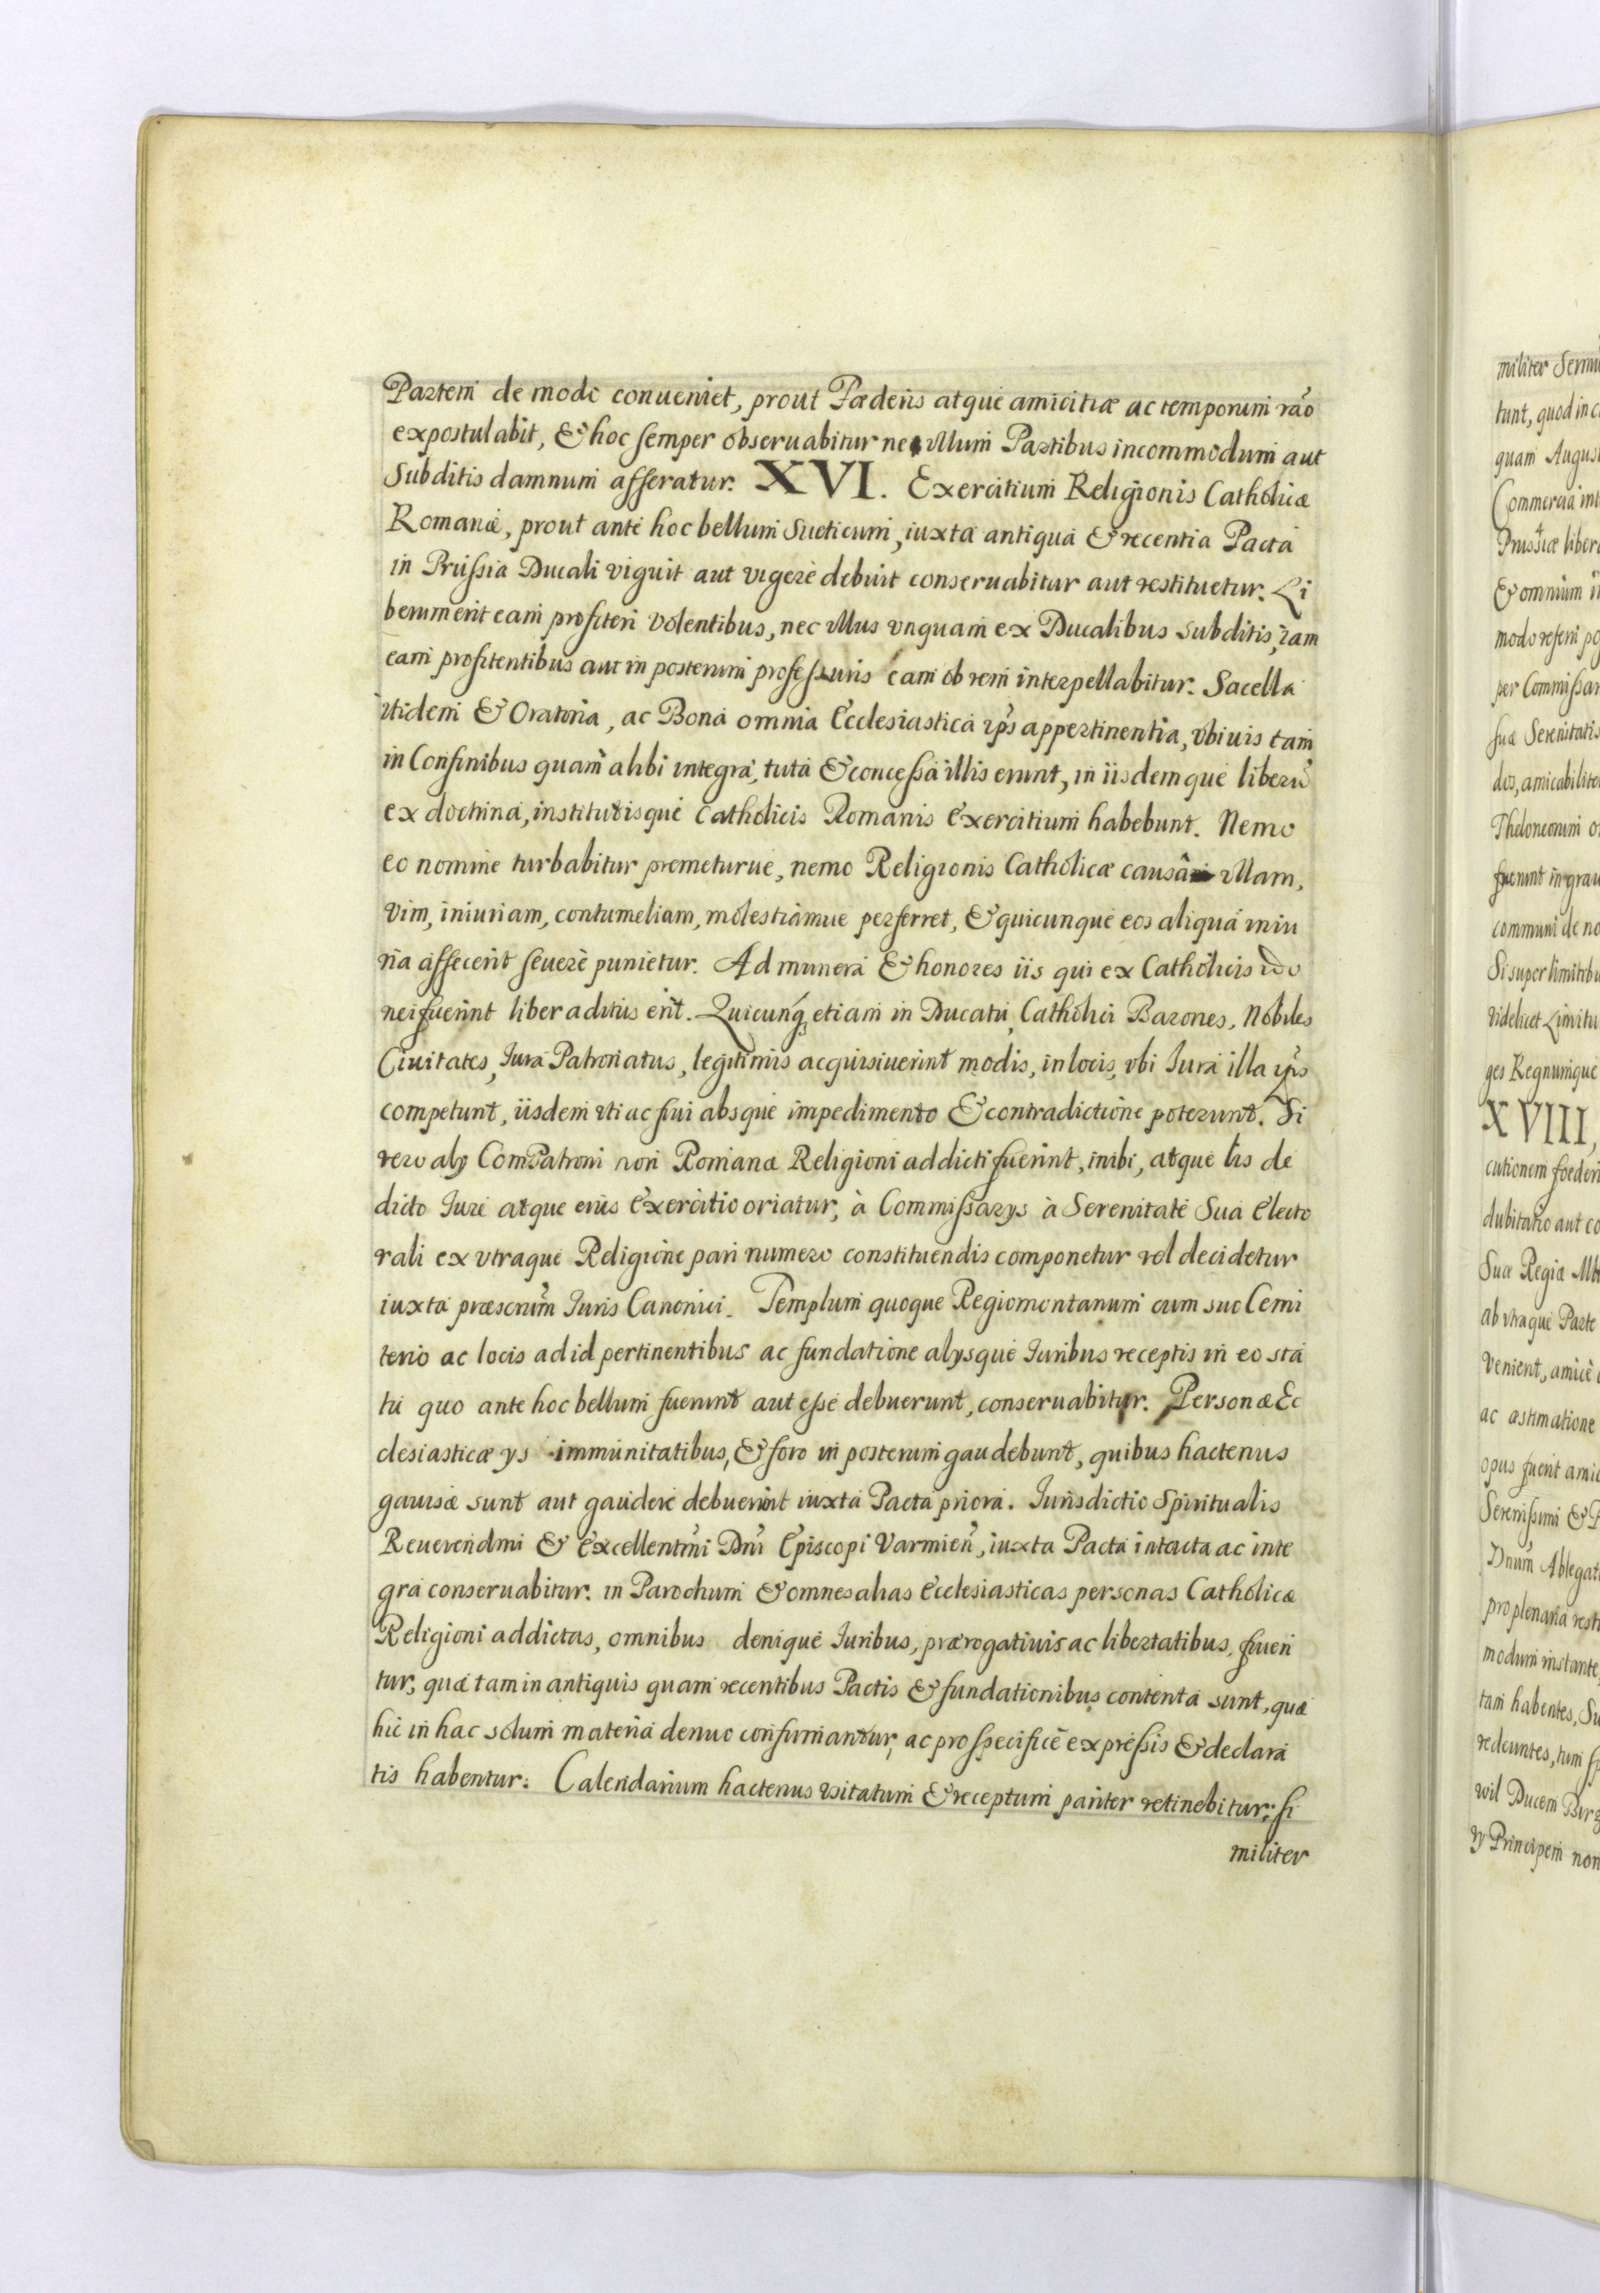 Partem de modo conueniet, prout Fœderis atque amicitiæ ac temporum rão
expostulabit, & hoc semper obseruabitur ne vllum Partibus incommodum aut
Subditis damnum afferatur. XVI. Exercitium Religionis Catholicæ
Romanæ, prout ante hoc bellum Sueticum, iuxta antiqua & recentia Pacta
in Prussia Ducali viguit aut vigere debuit conseruabitur aut restituetur. Li
berum erit eam profiteri volentibus, nec vllus vnquam ex Ducalibus subditis, iam
eam profitentibus aut in posterum professuris eam ob rem interpellabitur. Sacella
itidem & Oratoria, ac Bona omnia Ecclesiastica ips appertinentia, vbiuis tam
in Confinibus quam alibi integra, tuta & concessa illis erunt, in iisdemque liberũ
ex doctrina, institutisque Catholicis Romanis Exercitium habebunt. Nemo
eo nomine turbabitur premeturue, nemo Religionis Catholicæ causâ vllam,
vim, iniuriam, contumeliam, molestiamue perferret, & quicunque eos aliqua iniu
ria affecerit seuere punietur. Ad munera & honores iis qui ex Catholicis ido
nei fuerint liber aditus erit. Quicunq; etiam in Ducatu, Catholici Barones, Nobiles
Ciuitates, Jura Patronatus, legitimis acquisiuerint modis, in locis, vbi Jura illa ips
competunt, iisdem vti ac frui absque impedimento & contradictione poterunt. Si
vero alij ComPatroni non Romanæ Religioni addicti fuerint, inibi, atque lis de
dicto Jure atque eius Exercitio oriatur, à Commissarijs à Serenitate Sua Electo
rali ex vtraque Religione pari numero constituendis componetur vel decidetur
iuxta præscrium Juris Canonici. Templum quoque Regiomontanum cum suo Cemi
terio ac locis ad id pertinentibus ac fundatione alijsque Juribus receptis in eo sta
tu quo ante hoc bellum fuerunt aut esse debuerunt, conseruabitur. Personæ Ec
clesiasticæ ijs immunitatibus, & foro in posterum gaudebunt, quibus hactenus
gauisæ sunt aut gaudere debuerint iuxta Pacta priora. Jurisdictio Spiritualis
Reuerendmi & Excellentmi Dni Episcopi Varmien, iuxta Pacta intacta ac inte
gra conseruabitur. in Parochum & omnes alias Ecclesiasticas personas Catholicæ
Religioni addictas, omnibus denique Juribus, prærogatiuis ac libertatibus, fruen
tur, quæ tam in antiquis quam recentibus Pactis & fundationibus contenta sunt, quæ
hic in hac solum materia denuo confirmantur, ac pro specifice expressis & declara
tis habentur. Calendarium hactenus vsitatum & receptum pariter retinebitur; si
militer
militer
tunt, quod in
quam August
Commercia
Prussiæ liber
& omnium
modo referri
per Commissar
suæ Serenitatis
dos, amicabilite
Theloneorum
fuerunt in grau
communi de no
Si super limitib
videlicet Limitu
ges Regnumque
XVIII,
cutionem foeder
dubitatio aut co
Suæ Regiæ
ab vtraque Parte
venient, amicè
ac æstimatione
opus fuerit ami
Serenissimi &
Dnum Ablegat
pro plenaria rest
modum instante
tam habentes, Su
redeuntes, tum
wil Ducem
Principem non